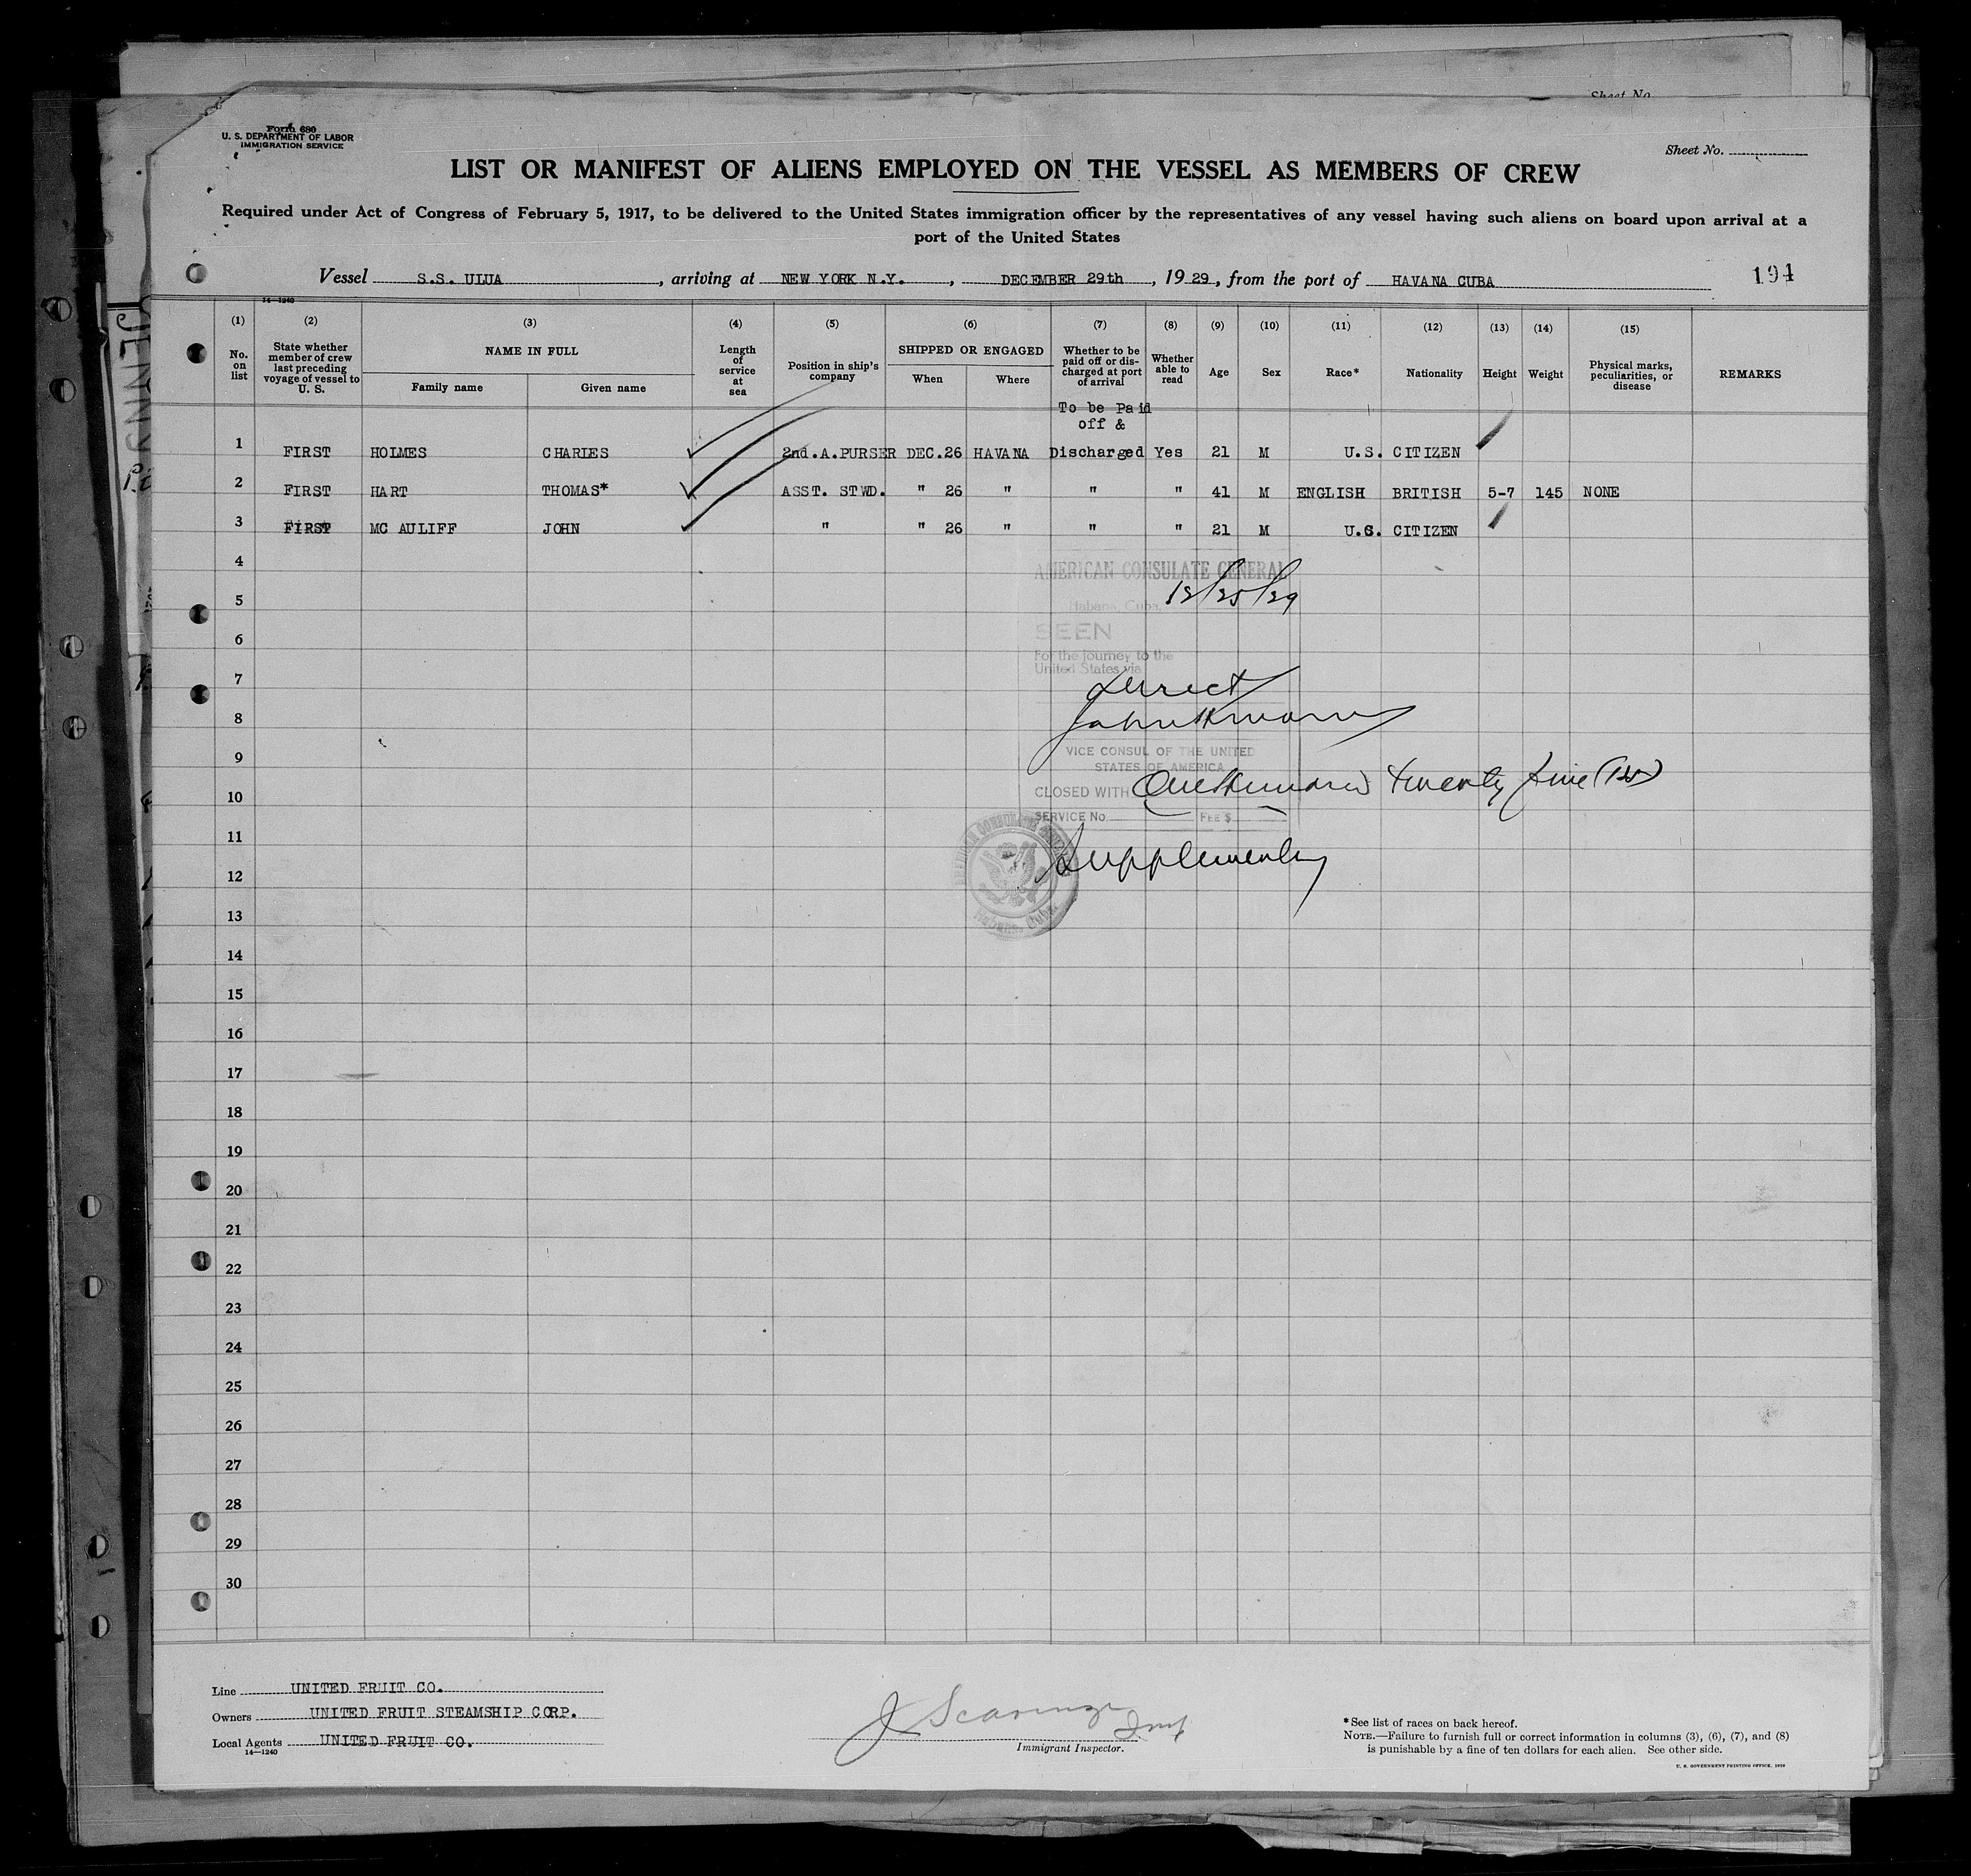 Sheet No.
Form 680
U. S. DEPARTMENT OF LABOR
IMMIGRATION SERVICE
Sheet No.
LIST OR MANIFEST OF ALIENS EMPLOYED ON THE VESSEL AS MEMBERS OF CREW
Required under Act of Congress of February 5, 1917, to be delivered to the United States immigration officer by the representatives of any vessel having such aliens on board upon arrival at a
port of the United States
Vessel S.S. ULUA, arriving at NEW YORK N.Y., DECEMBER 29th, 1929, from the port of HAVANA CUBA 194
14—1240
(1) (2) (3) (4) (5) (6) (7) (8) (9) (10) (11) (12) (13) (14) (15)
No. on list
State whether member of crew last preceding voyage of vessel to U. S.
NAME IN FULL
Family name
Given name
Length of service at sea
Position in ship's company
SHIPPED OR ENGAGED
When
Where
Whether to be paid off or discharged at port of arrival
Whether able to read
Age
Sex
Race*
Nationality
Height
Weight
Physical marks, peculiarities, or disease
REMARKS
To be Paid
off &
1 FIRST HOLMES CHARLES 2nd.A.PURSER DEC.26 HAVANA Discharged Yes 21 M U.S. CITIZEN
2 FIRST HART THOMAS* ASST. STWD. " 26 " " " 41 M ENGLISH BRITISH 5-7 145 NONE
3 FIRST MC AULIFF JOHN " " 26 " " " 21 M U.S. CITIZEN
4
AMERICAN CONSULATE GENERAL
5
12/25/29
Habana, Cuba,
6
SEEN
For the journey to the
United States via
7
Direct
8
9
VICE CONSUL OF THE UNITED
STATES OF AMERICA
10
CLOSED WITH twenty five
SERVICE No. FEE $
11
Supplementary
12
Habana, Cuba.
13
14
15
16
17
18
19
20
21
22
23
24
25
26
27
28
29
30
Line UNITED FRUIT CO.
Owners UNITED FRUIT STEAMSHIP CORP.
Local Agents UNITED FRUIT CO.
14—1240
Immigrant Inspector.
*See list of races on back hereof.
NOTE.—Failure to furnish full or correct information in columns (3), (6), (7), and (8)
is punishable by a fine of ten dollars for each alien. See other side.
U. S. GOVERNMENT PRINTING OFFICE, 1929